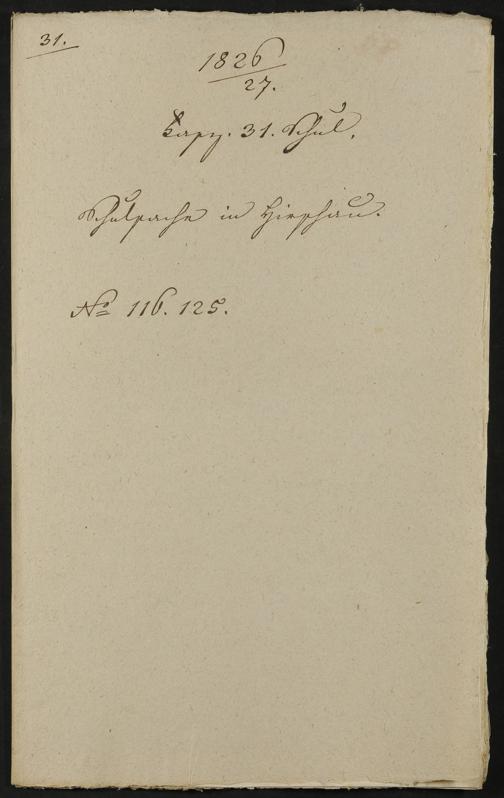 31.
1826
27.
Fasz. 31. Schul.
Schulsache in Hirschau.
No 116. 125.